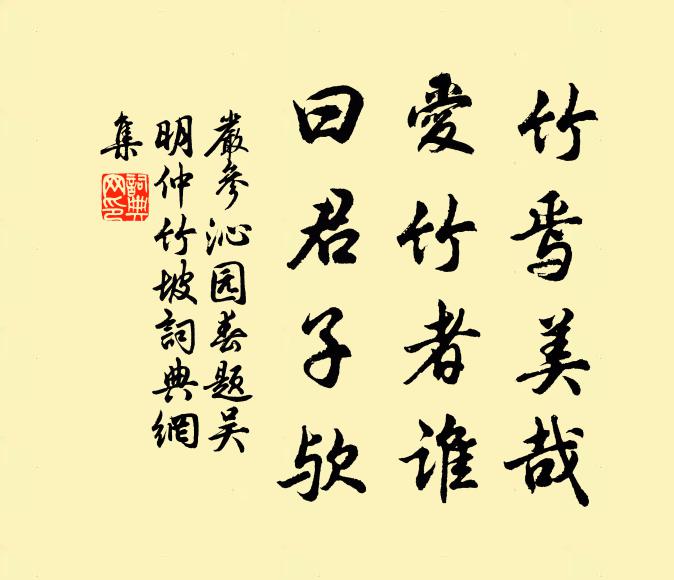 竹焉美哉
愛竹者谁
曰君子欤
嚴參沁园春题吴
明仲竹坡詞典網
集
詞典
网印